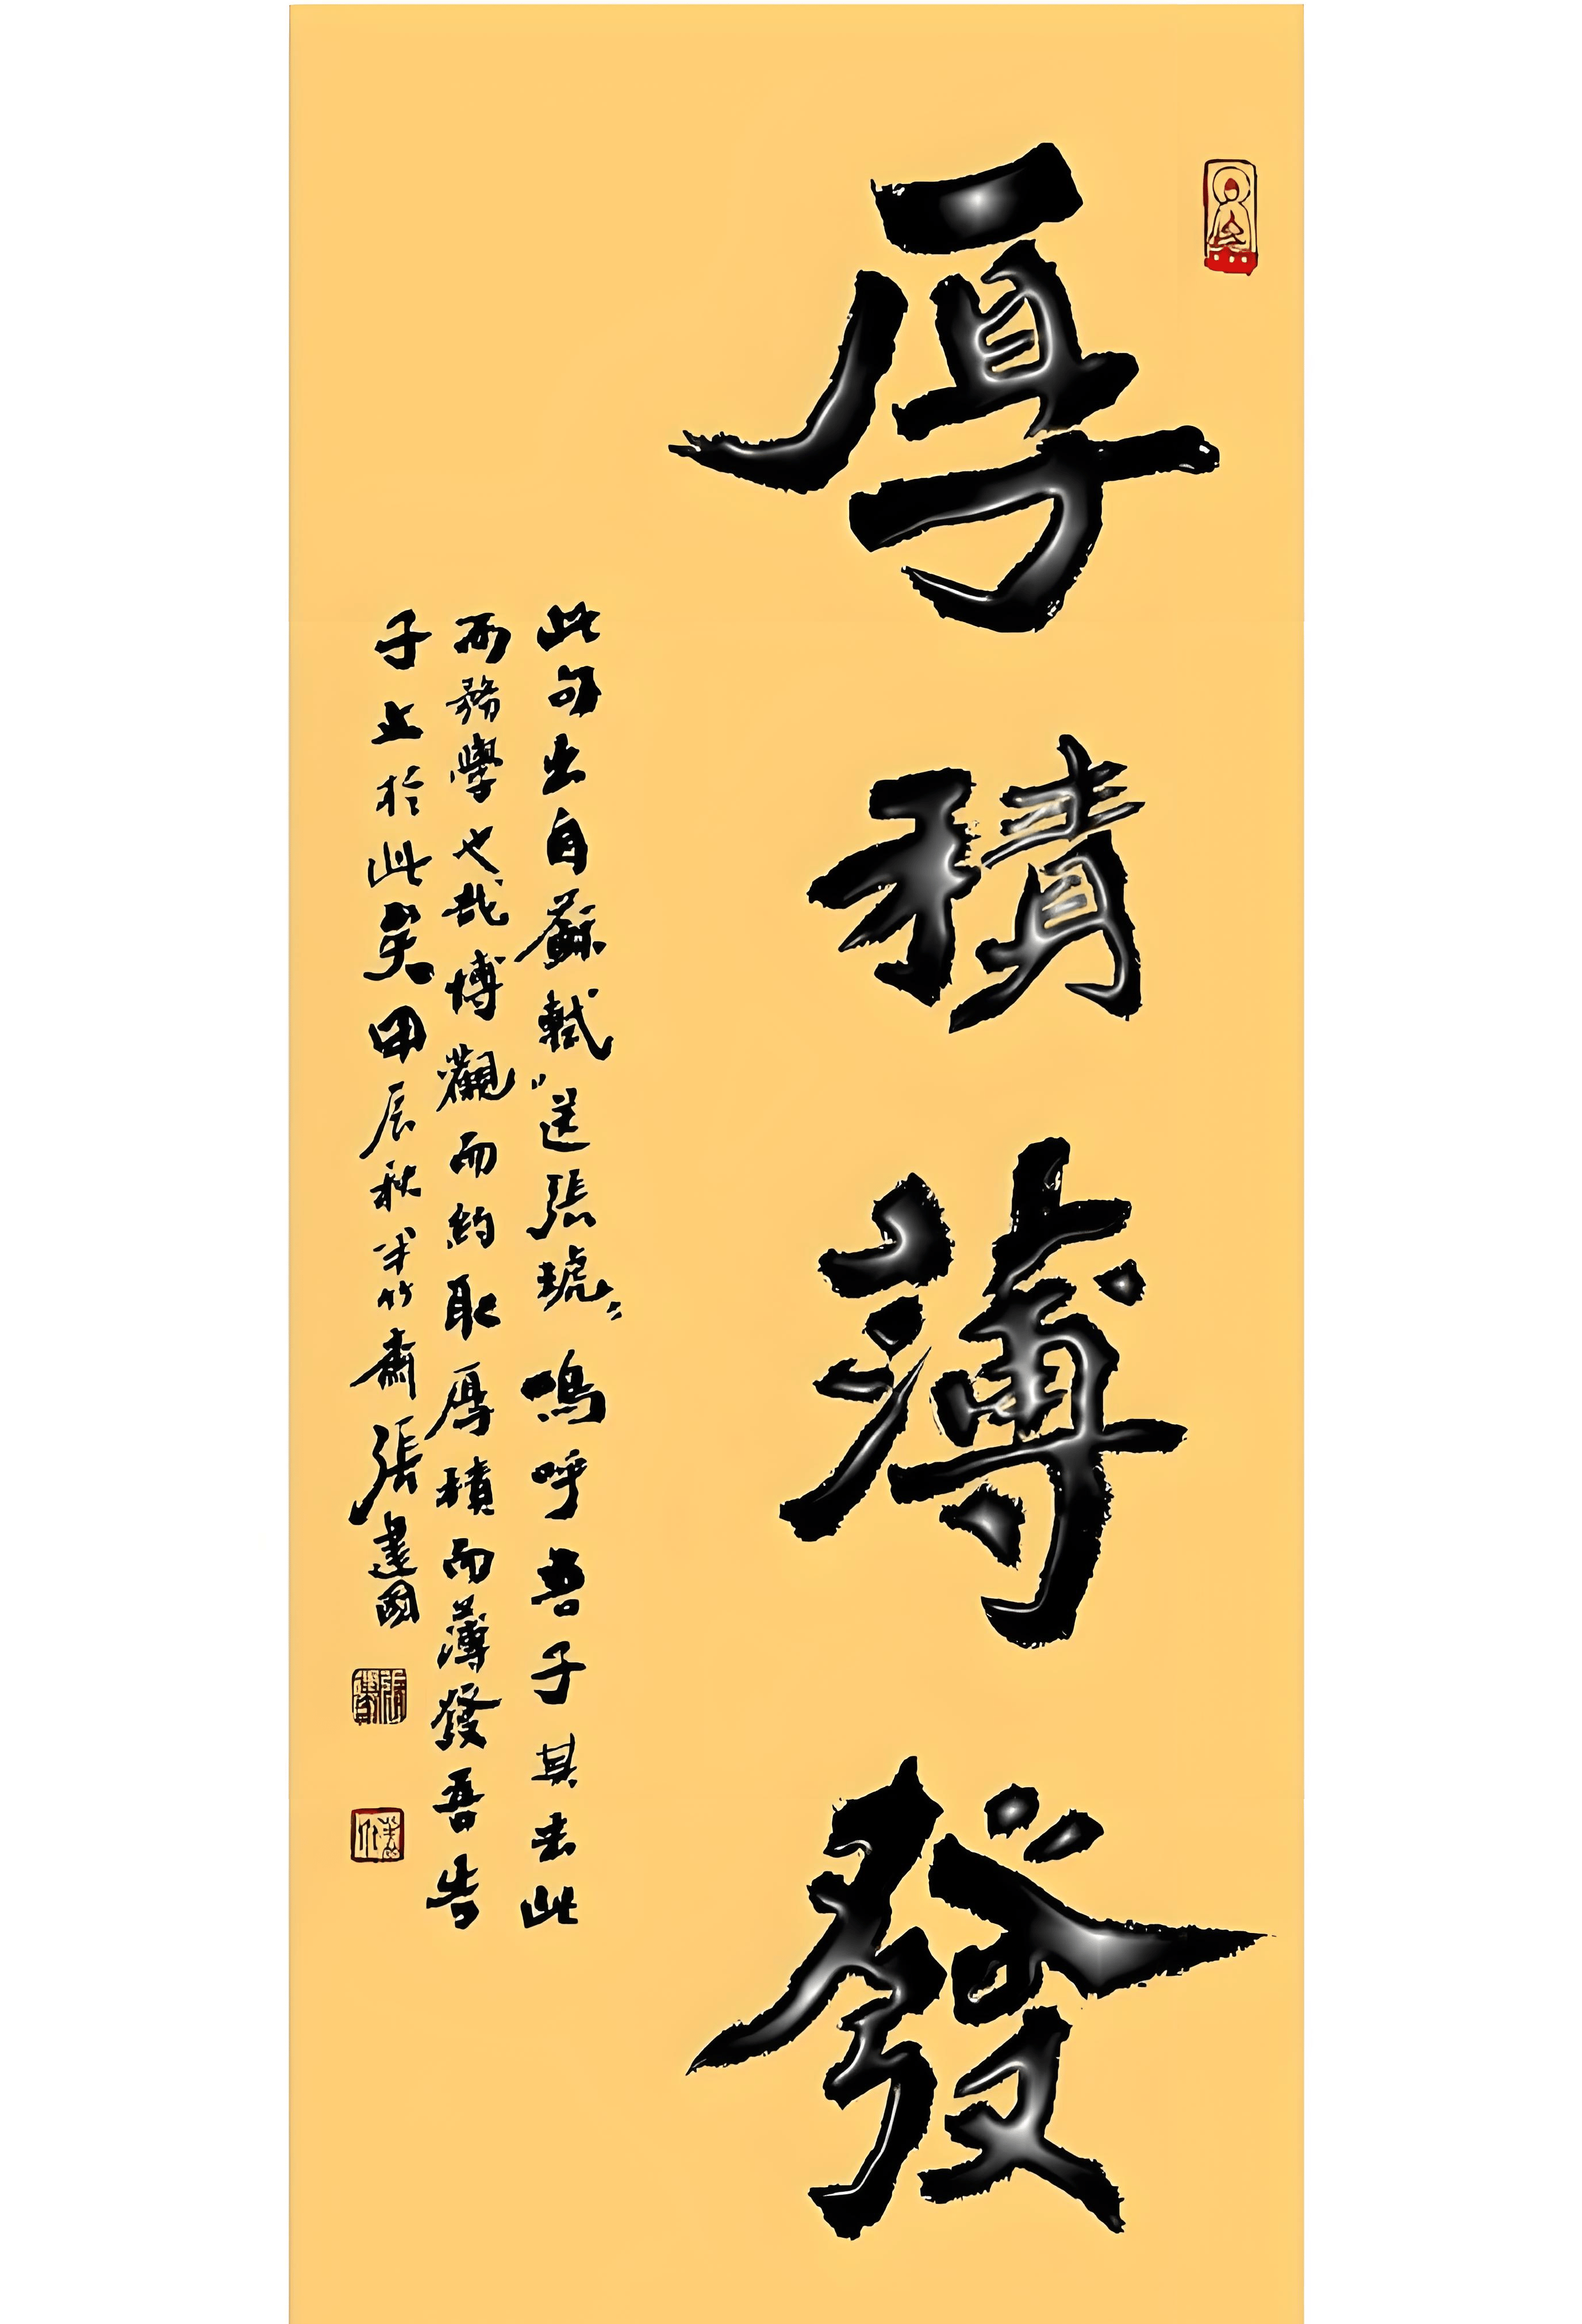 厚積薄發
此句出自蘇軾"送張琥"嗚呼吾子其去此
而務學也哉博觀而約取厚積而薄發吾告
子止於此矣甲辰秋半竹齋張建國